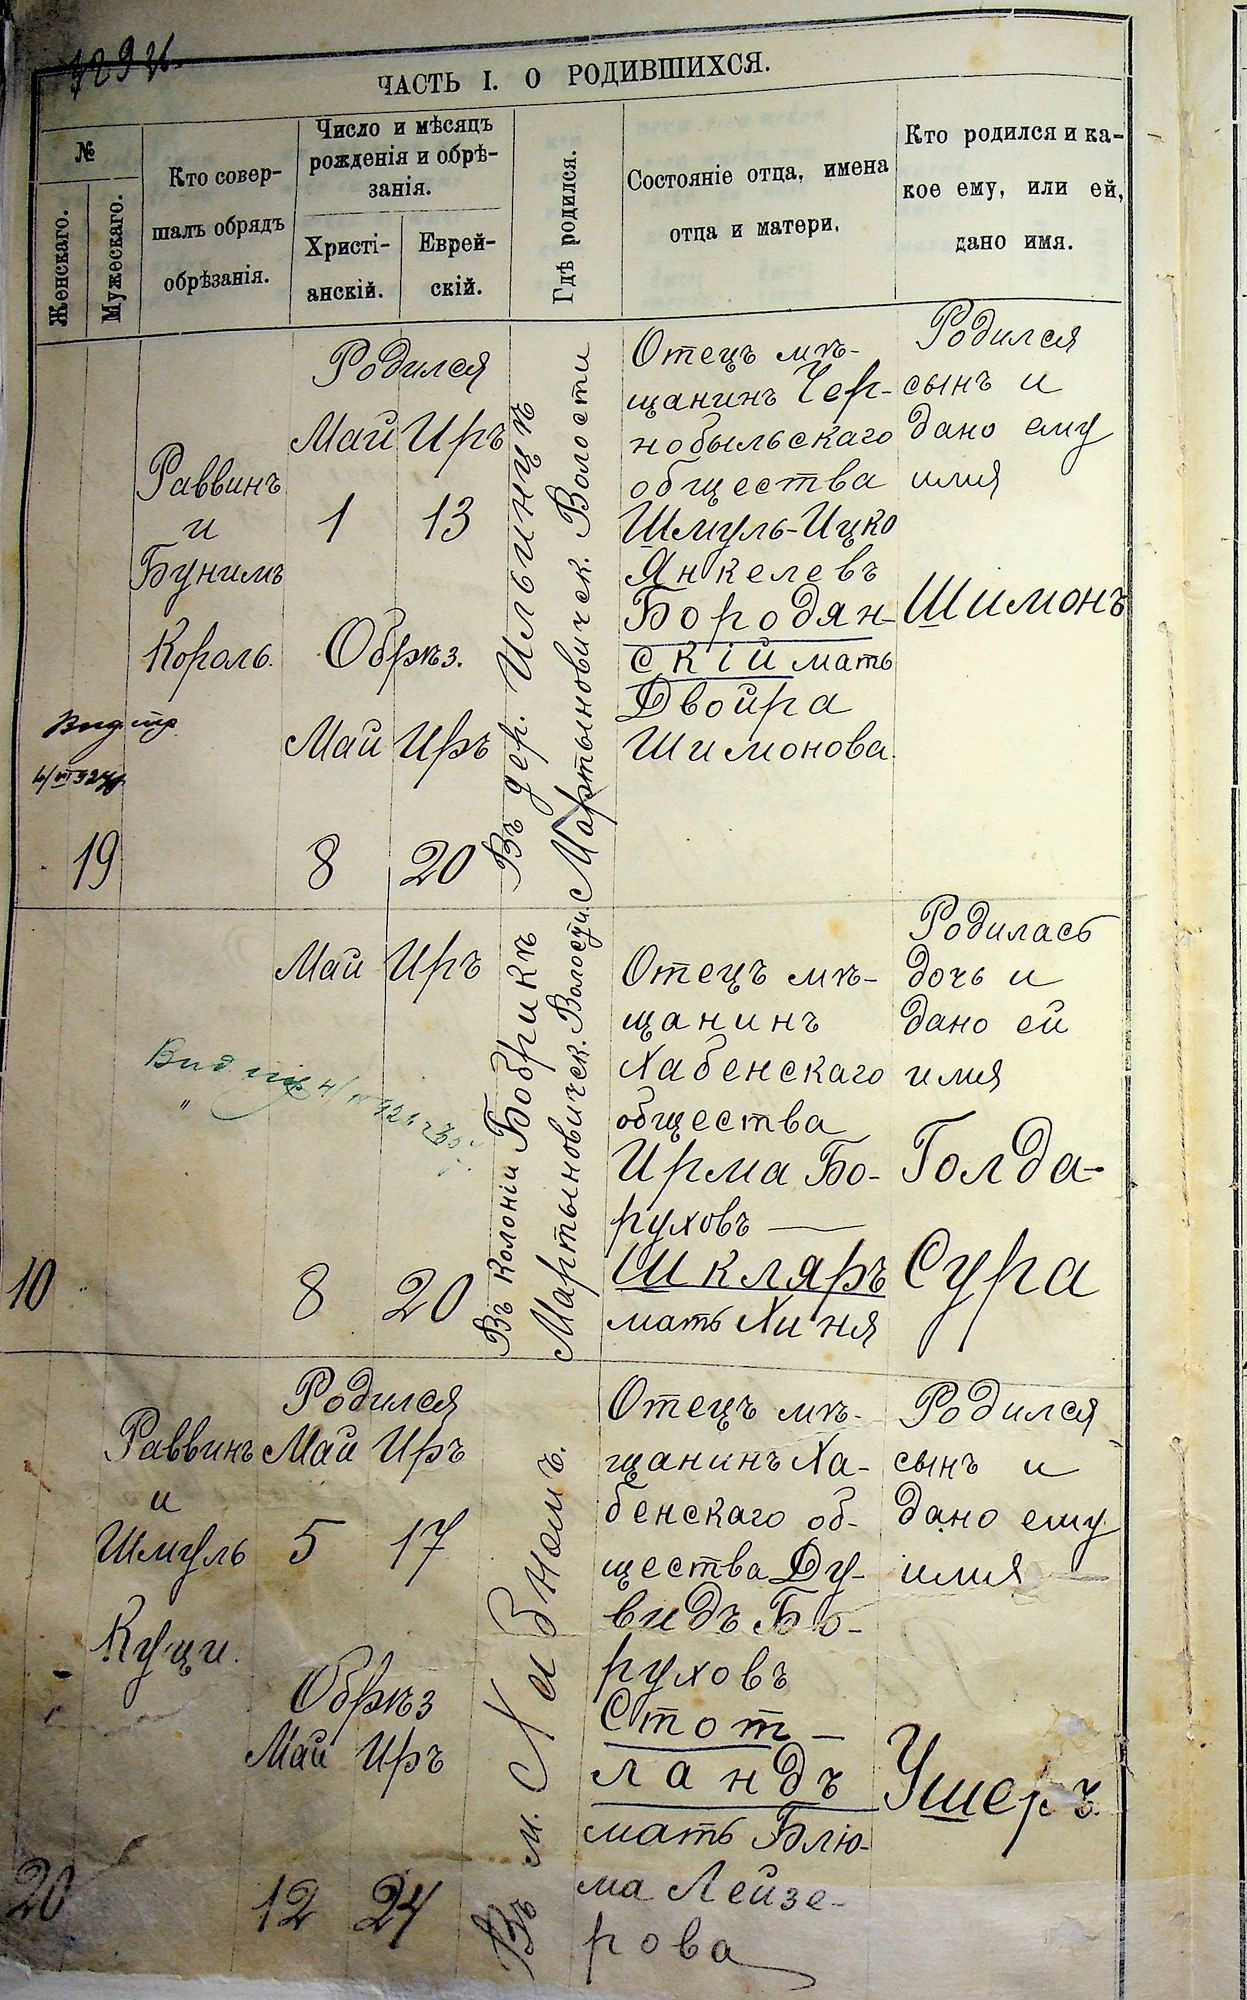 ЧАСТЬ I. О РОДИВШИХСЯ.
№
Женскаго.
Мужескаго.
Кто совер-
шалъ обрядъ
обрѣзанія.
Число и мѣсяцъ
рожденія и обрѣ-
занія.
Христі-
анскій.
Еврей-
скій.
Гдѣ родился.
Состояніе отца, имена
отца и матери.
Кто родился и ка-
кое ему, или ей,
дано имя.
19
Раввинъ
и
Бунимъ
Король.
Родился
Май Иръ
1 13
Обрѣз.
Май Иръ
8 20
Въ дер. Ильинцѣ
Мартыновичск. Волости
Отецъ мѣ-
щанинъ Чер-
нобыльскаго
общества
Шмуль-Ицко
Янкелевъ
Бородян-
скій мать
Двойра
Шимонова.
Родился
сынъ и
дано ему
имя
Шимонъ
10
Май Иръ
8 20
Въ колоніи Бобрикѣ
Мартыновичск. Волости.
Отецъ мѣ-
щанинъ
Хабенскаго
общества
Ирма Бо-
руховъ —
Шкляръ
мать Хиня
Родилась
дочь и
дано ей
имя
Голда-
Сура
20
Раввинъ
и
Шмуль
Куци.
Родился
Май Иръ
5 17
Обрѣз
Май Иръ
12 24
Въ м. Хабномъ.
Отецъ мѣ-
щанинъ Ха-
бенскаго об-
щества Ду-
видъ Бо-
руховъ
Стот-
ландъ
мать Блю-
ма Лейзе-
рова
Родился
сынъ и
дано ему
имя —
Ушеръ